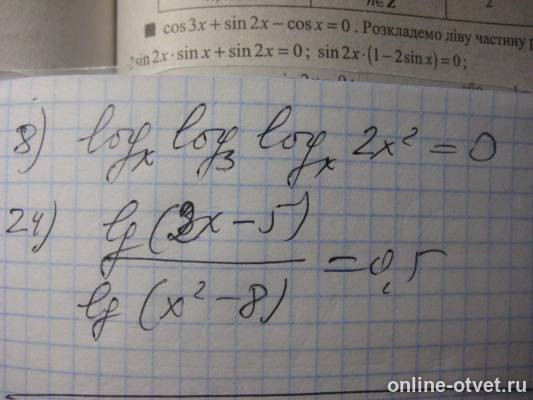 n∈Z 2
cos3x+sin2x−cosx=0. Розкладемо ліву частину
2sin2x·sinx+sin2x=0; sin2x·(1−2sinx)=0;
8) logₓ log₃ logₓ 2x² = 0
24) lg(3x−5)
= 0,5
lg(x²−8)
online-otvet.ru